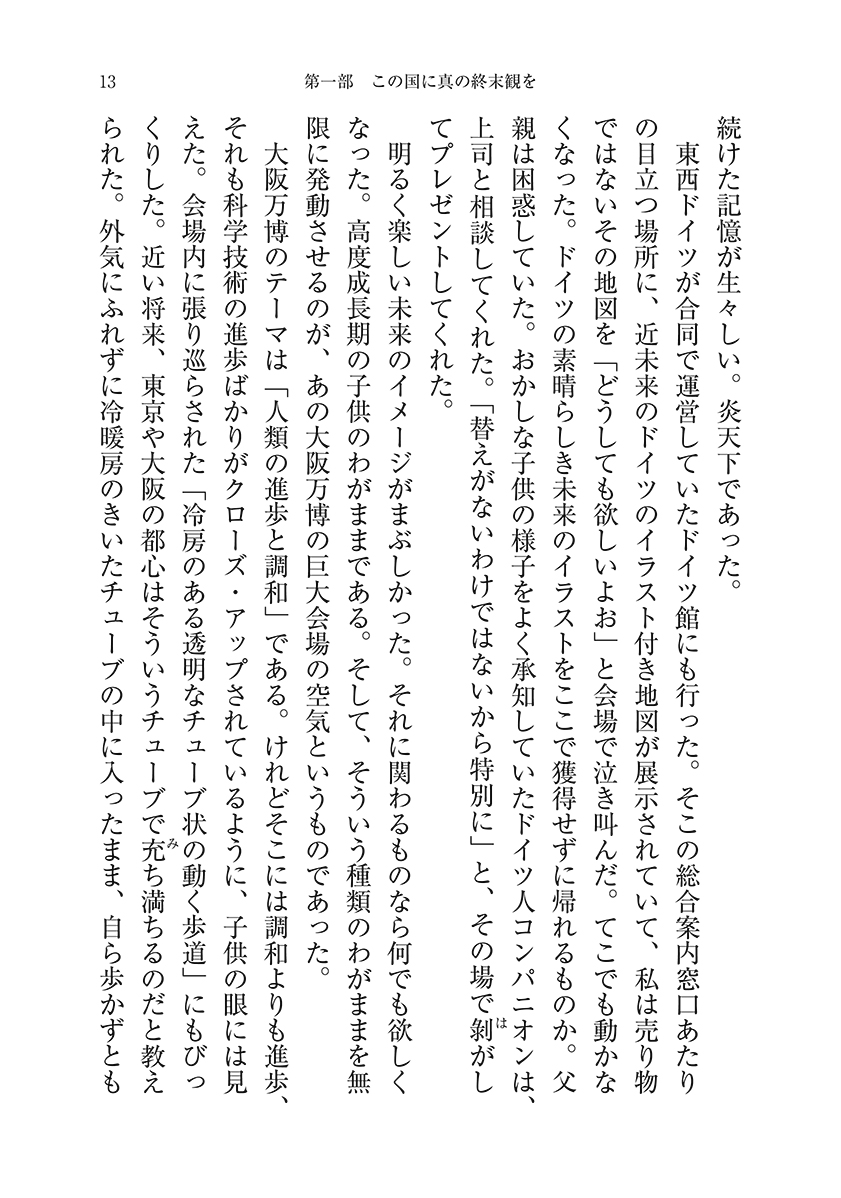 13
第一部　この国に真の終末観を
続けた記憶が生々しい。炎天下であった。
　東西ドイツが合同で運営していたドイツ館にも行った。そこの総合案内窓口あたり
の目立つ場所に、近未来のドイツのイラスト付き地図が展示されていて、私は売り物
ではないその地図を「どうしても欲しいよお」と会場で泣き叫んだ。てこでも動かな
くなった。ドイツの素晴らしき未来のイラストをここで獲得せずに帰れるものか。父
親は困惑していた。おかしな子供の様子をよく承知していたドイツ人コンパニオンは、
上司と相談してくれた。「替えがないわけではないから特別に」と、その場で剝がし
は
てプレゼントしてくれた。
　明るく楽しい未来のイメージがまぶしかった。それに関わるものなら何でも欲しく
なった。高度成長期の子供のわがままである。そして、そういう種類のわがままを無
限に発動させるのが、あの大阪万博の巨大会場の空気というものであった。
　大阪万博のテーマは「人類の進歩と調和」である。けれどそこには調和よりも進歩、
それも科学技術の進歩ばかりがクローズ・アップされているように、子供の眼には見
えた。会場内に張り巡らされた「冷房のある透明なチューブ状の動く歩道」にもびっ
くりした。近い将来、東京や大阪の都心はそういうチューブで充ち満ちるのだと教え
み
られた。外気にふれずに冷暖房のきいたチューブの中に入ったまま、自ら歩かずとも